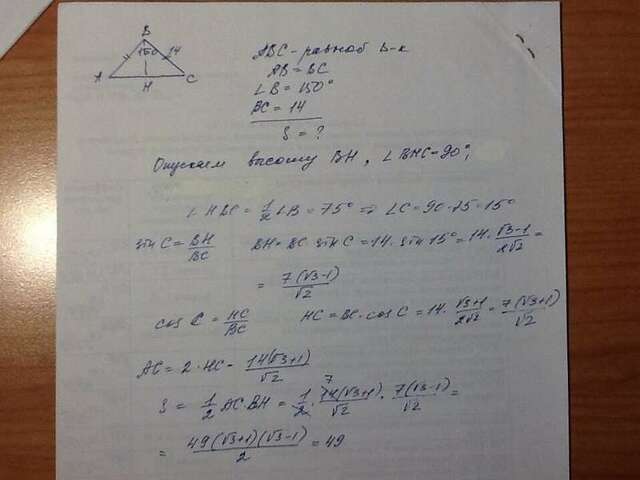 B
150 14
A H C
ABC - равноб Δ-к
AB = BC
∠B = 150°
BC = 14
S = ?
Опускаем высоту BH, ∠BHC = 90°,
∠HBC = 1/2 ∠B = 75° ⇒ ∠C = 90-75 = 15°
sin C = BH/BC BH = BC sin C = 14 · sin 15° = 14 · (√3-1)/(2√2) =
= 7(√3-1)/√2
cos C = HC/BC HC = BC · cos C = 14 · (√3+1)/(2√2) = 7(√3+1)/√2
AC = 2 · HC = 14(√3+1)/√2
7
S = 1/2 AC BH = 1/2 · 14(√3+1)/√2 · 7(√3-1)/√2 =
= 49(√3+1)(√3-1)/2 = 49